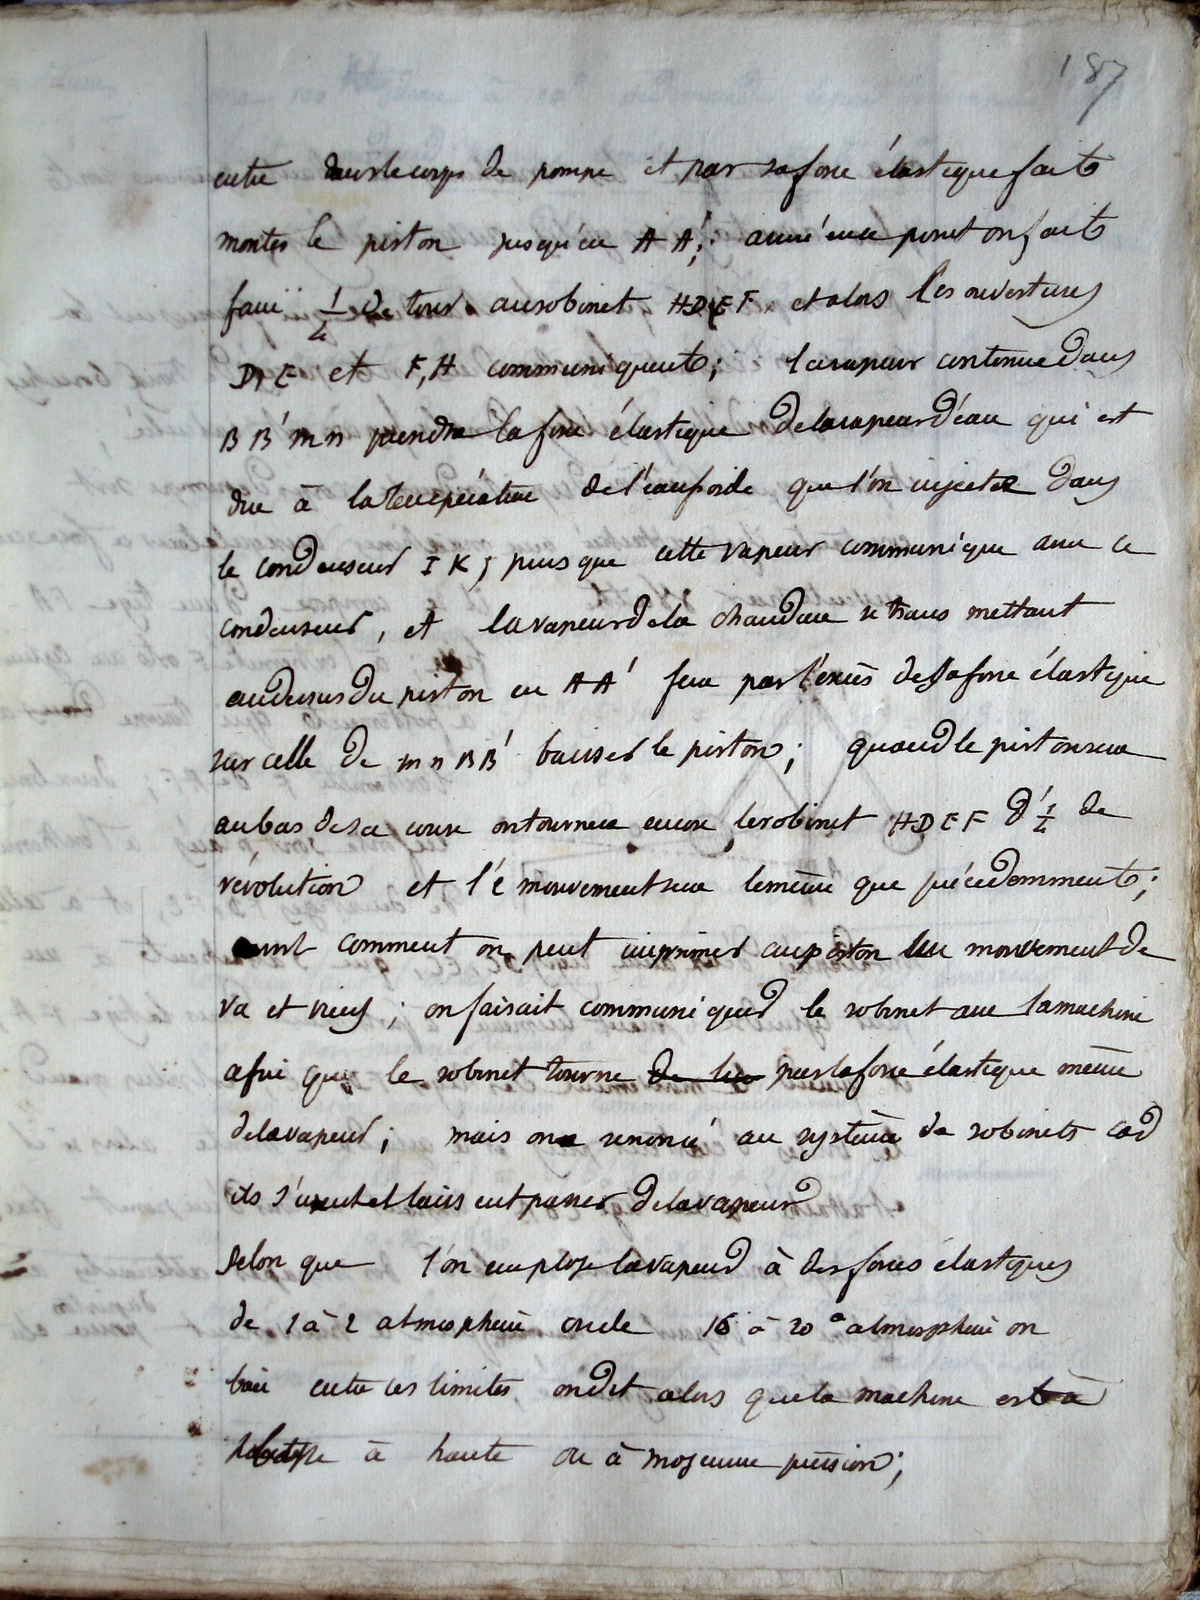 187
entre dans le corps de pompe et par sa force élastique fait
monter le piston jusqu'en A A'; arrivé à ce point on fait
faire 1/4 de tour au robinet HDEF et alors les ouvertures
D, E et F, H communiquent; la vapeur contenue dans
B B' m n prendra la force élastique de la vapeur d'eau qui est
due à la température de l'eau froide que l'on injecte dans
le condenseur I K, puisque cette vapeur communique avec ce
condenseur, et la vapeur de la chaudière se transmettant
au dessus du piston en A A' fera par l'excès de sa force élastique
sur celle de m n B B' baisser le piston; quand le piston sera
au bas de sa course on tournera encore le robinet HDEF d'1/4 de
révolution et le mouvement sera le même que précédemment;
comment on peut imprimer au piston un mouvement de
va et vient; on faisait communiquer le robinet avec la machine
afin que le robinet tourne de lui par la force élastique même
de la vapeur; mais on a renoncé au système de robinets car
ils s'usent et laissent passer de la vapeur
Selon que l'on emploie la vapeur à des forces élastiques
de 1 à 2 atmosphère ou de 16 à 20 atmosphère ou
bien entre ces limites on dit alors que la machine est à
basse à haute ou à moyenne pression;